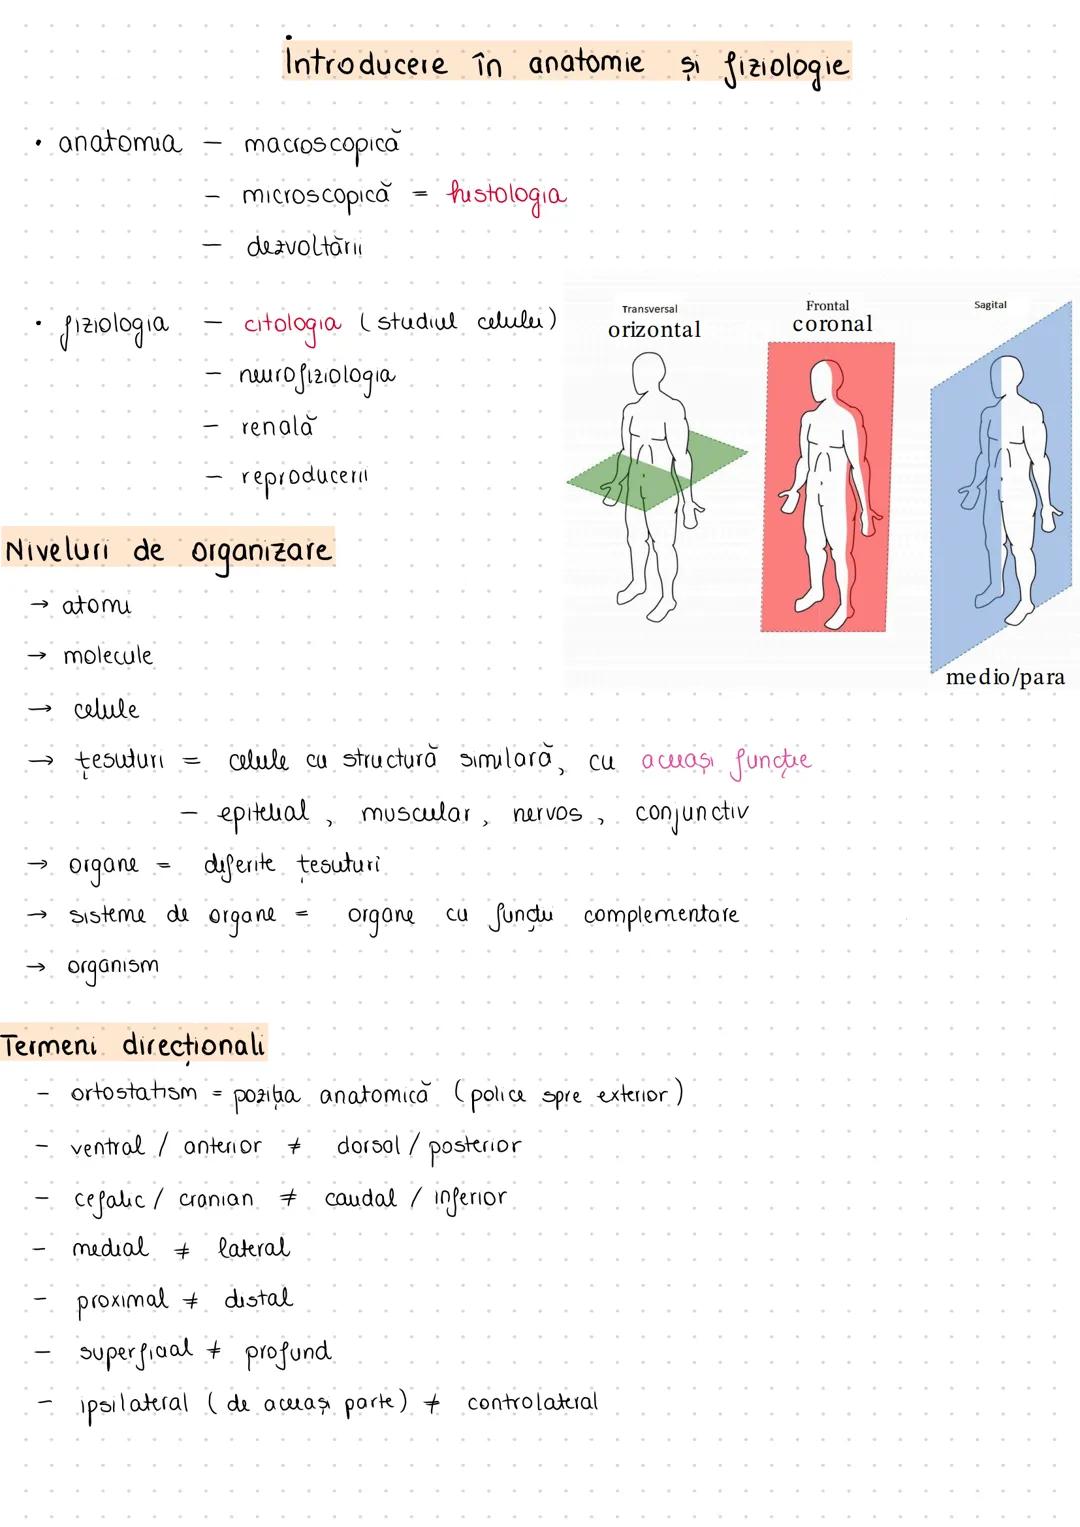 Introducere în anatomie și fiziologie
• anatomia – macroscopică
– microscopică = histologia
– dezvoltării
• fiziologia – citologia (studiul celulei)
– neurofiziologia
– renală
– reproducerii
Transversal
orizontal
Frontal
coronal
Sagital
medio/para
Niveluri de organizare
→ atomi
→ molecule
→ celule
→ țesuturi = celule cu structură similară, cu aceeași funcție
– epitelial, muscular, nervos, conjunctiv
→ organe = diferite țesuturi
→ sisteme de organe = organe cu funcții complementare
→ organism
Termeni direcționali
– ortostatism = poziția anatomică (police spre exterior)
– ventral / anterior ≠ dorsal / posterior
– cefalic / cranian ≠ caudal / inferior
– medial ≠ lateral
– proximal ≠ distal
– superficial ≠ profund
– ipsilateral (de aceeași parte) ≠ controlateral